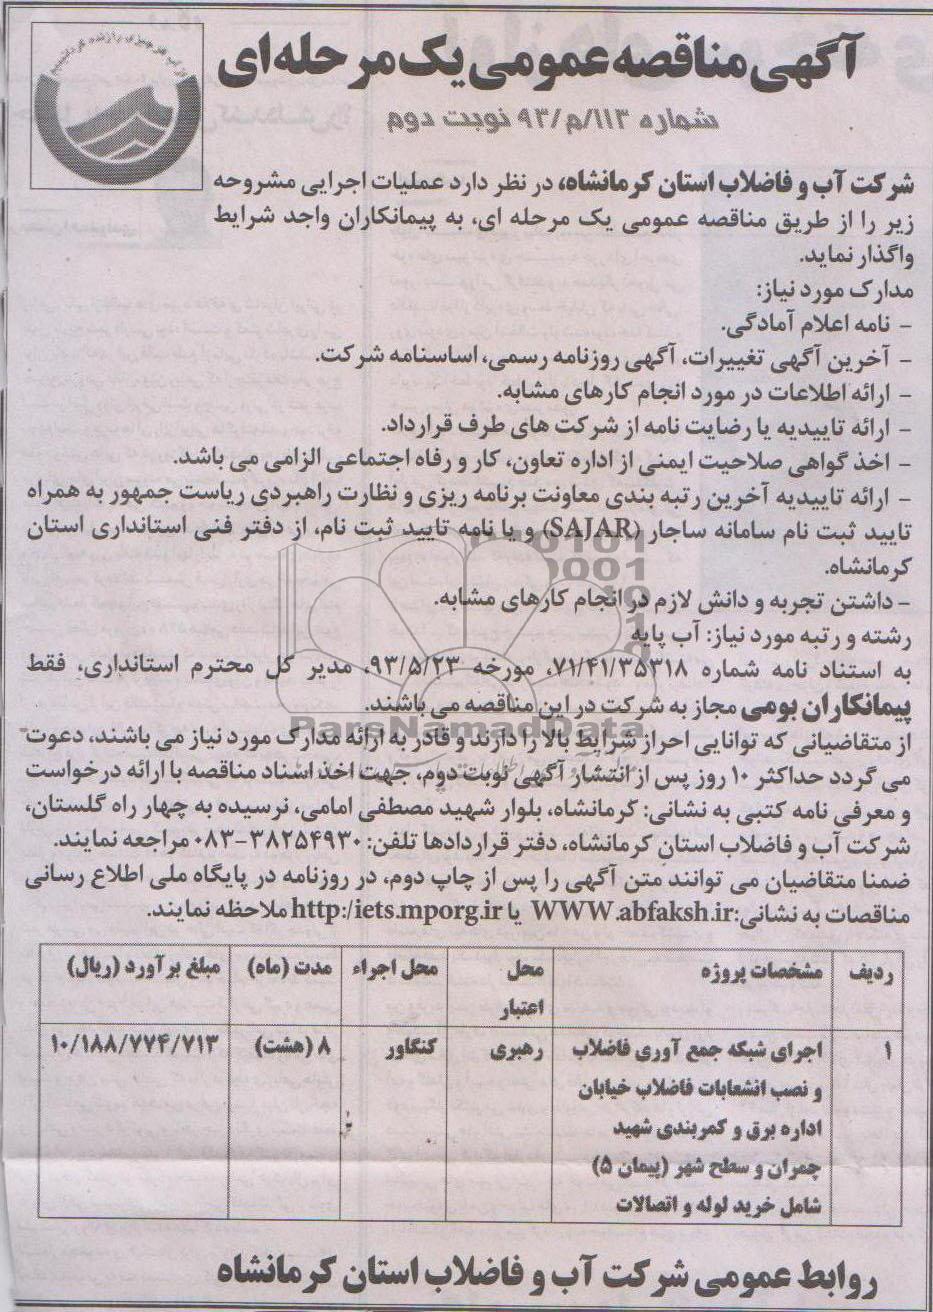 آگهی مناقصه عمومی یک مرحله ای
شماره ۱۱۳/م/۹۳ نوبت دوم
شرکت آب و فاضلاب استان کرمانشاه، در نظر دارد عملیات اجرایی مشروحه
زیر را از طریق مناقصه عمومی یک مرحله ای، به پیمانکاران واجد شرایط
واگذار نماید.
مدارک مورد نیاز:
- نامه اعلام آمادگی.
- آخرین آگهی تغییرات، آگهی روزنامه رسمی، اساسنامه شرکت.
- ارائه اطلاعات در مورد انجام کارهای مشابه.
- ارائه تاییدیه یا رضایت نامه از شرکت های طرف قرارداد.
- اخذ گواهی صلاحیت ایمنی از اداره تعاون، کار و رفاه اجتماعی الزامی می باشد.
- ارائه تاییدیه آخرین رتبه بندی معاونت برنامه ریزی و نظارت راهبردی ریاست جمهور به همراه
تایید ثبت نام سامانه ساجار (SAJAR) و یا نامه تایید ثبت نام، از دفتر فنی استانداری استان
کرمانشاه.
- داشتن تجربه و دانش لازم در انجام کارهای مشابه.
رشته و رتبه مورد نیاز: آب پایه
به استناد نامه شماره ۷۱/۴۱/۳۵۳۱۸، مورخه ۹۳/۵/۲۳، مدیر کل محترم استانداری، فقط
پیمانکاران بومی مجاز به شرکت در این مناقصه می باشند.
از متقاضیانی که توانایی احراز شرایط بالا را دارند و قادر به ارائه مدارک مورد نیاز می باشند، دعوت
می گردد حداکثر ۱۰ روز پس از انتشار آگهی نوبت دوم، جهت اخذ اسناد مناقصه با ارائه درخواست
و معرفی نامه کتبی به نشانی: کرمانشاه، بلوار شهید مصطفی امامی، نرسیده به چهار راه گلستان،
شرکت آب و فاضلاب استان کرمانشاه، دفتر قراردادها تلفن: ۳۸۲۵۴۹۳۰-۰۸۳ مراجعه نمایند.
ضمنا متقاضیان می توانند متن آگهی را پس از چاپ دوم، در روزنامه در پایگاه ملی اطلاع رسانی
مناقصات به نشانی: WWW.abfaksh.ir یا http:/iets.mporg.ir ملاحظه نمایند.
ردیف مشخصات پروژه محل اعتبار محل اجراء مدت (ماه) مبلغ برآورد (ریال)
۱ اجرای شبکه جمع آوری فاضلاب رهبری کنگاور ۸ (هشت) ۱۰/۱۸۸/۷۷۴/۷۱۳
و نصب انشعابات فاضلاب خیابان
اداره برق و کمربندی شهید
چمران و سطح شهر (پیمان ۵)
شامل خرید لوله و اتصالات
روابط عمومی شرکت آب و فاضلاب استان کرمانشاه
ParsNamadData